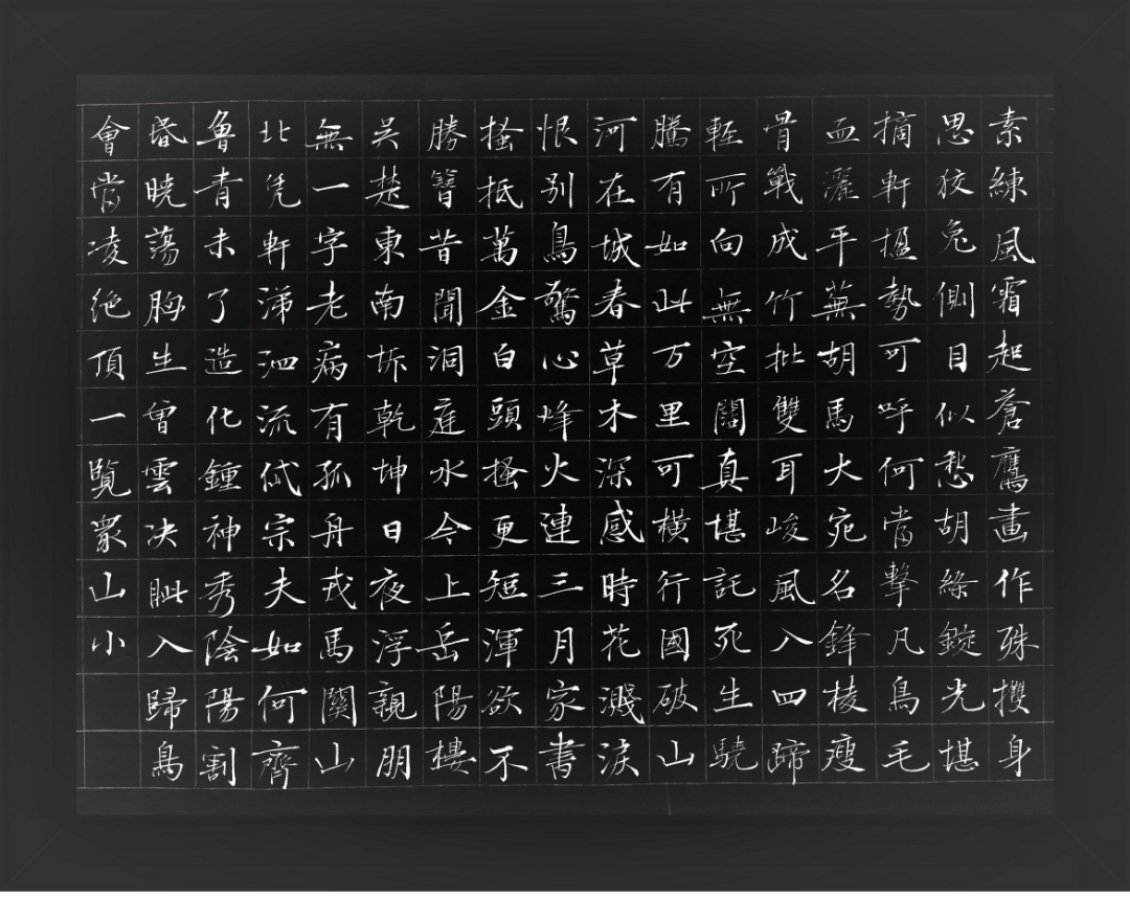 素練風霜起蒼鷹畫作殊㩳身
思狡兔側目似愁胡絛鏇光堪
摘軒楹勢可呼何當擊凡鳥毛
血灑平蕪胡馬大宛名鋒棱瘦
骨戰成竹批雙耳峻風入四蹄
輕所向無空闊真堪託死生驍
騰有如此万里可橫行國破山
河在城春草木深感時花濺淚
恨别鳥驚心烽火連三月家書
搔抵萬金白頭搔更短渾欲不
勝簪昔聞洞庭水今上岳陽樓
吳楚東南坼乾坤日夜浮親朋
無一字老病有孤舟戎馬關山
北凭軒涕泗流岱宗夫如何齊
魯青未了造化鍾神秀陰陽割
昏曉蕩胸生曾雲决眦入歸鳥
會當凌絶頂一覽眾山小